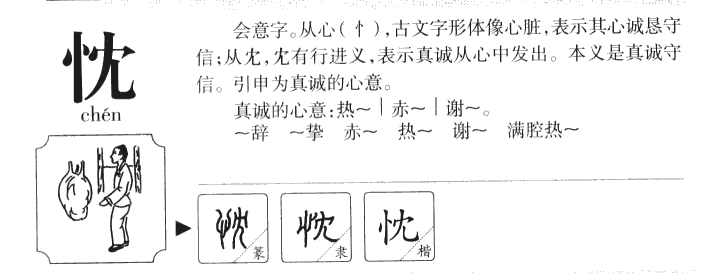 忱
chén
会意字。从心(忄),古文字形体像心脏,表示其心诚恳守
信;从冘,冘有行进义,表示真诚从心中发出。本义是真诚守
信。引申为真诚的心意。
真诚的心意:热~|赤~|谢~。
~辞 ~挚 赤~ 热~ 谢~ 满腔热~
忱 篆 忱 隶 忱 楷